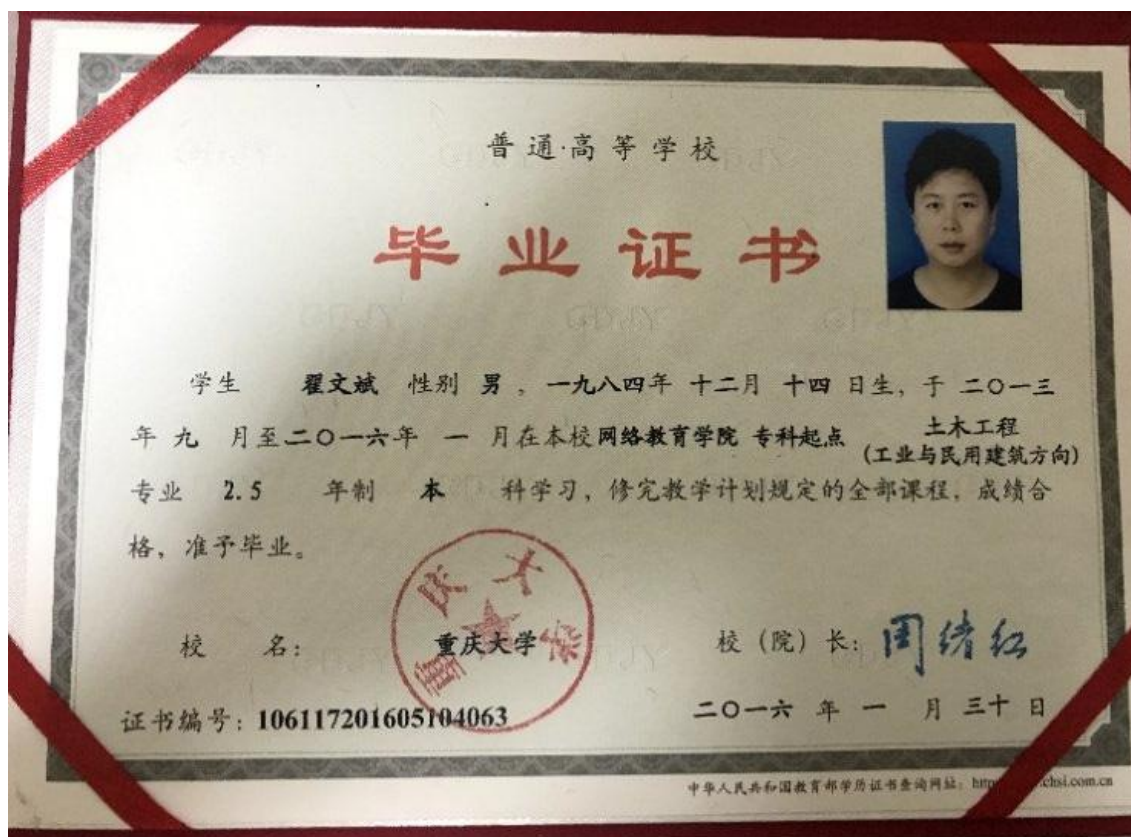 普通高等学校
毕业证书
学生 翟文斌 性别 男，一九八四年 十二月 十四 日生，于 二〇一三
年 九 月至二〇一六年 一 月在本校网络教育学院 专科起点 土木工程
(工业与民用建筑方向)
专业 2.5 年制 本 科学习，修完教学计划规定的全部课程，成绩合
格，准予毕业。
重庆大学
校 名： 重庆大学 校（院）长：周绪红
证书编号：106117201605104063 二〇一六 年 一 月 三十 日
中华人民共和国教育部学历证书查询网址：chsi.com.cn